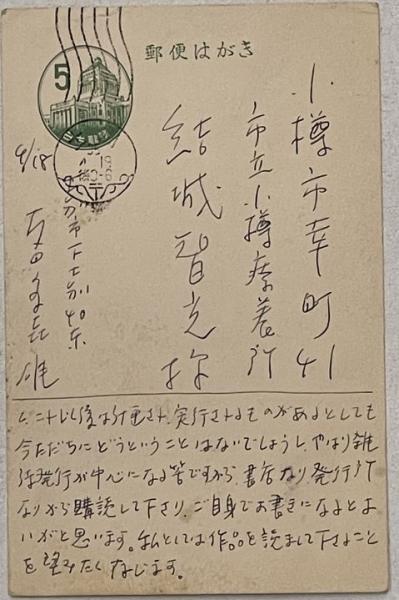 郵便はがき
5
小樽市幸町41
市立小樽療養所
結城智光様
9/18
士別市下士別40東
喜雄
実行されるものがあるとしても
今ただちにどうということはないでしょうし、やはり雑
誌発行が中心になる筈ですから、書店なり、発行所
なりから購読して下さり、ご自身でお書きになるとよ
いがと思います。私としては作品を読まして下さること
を望みたくなじます。